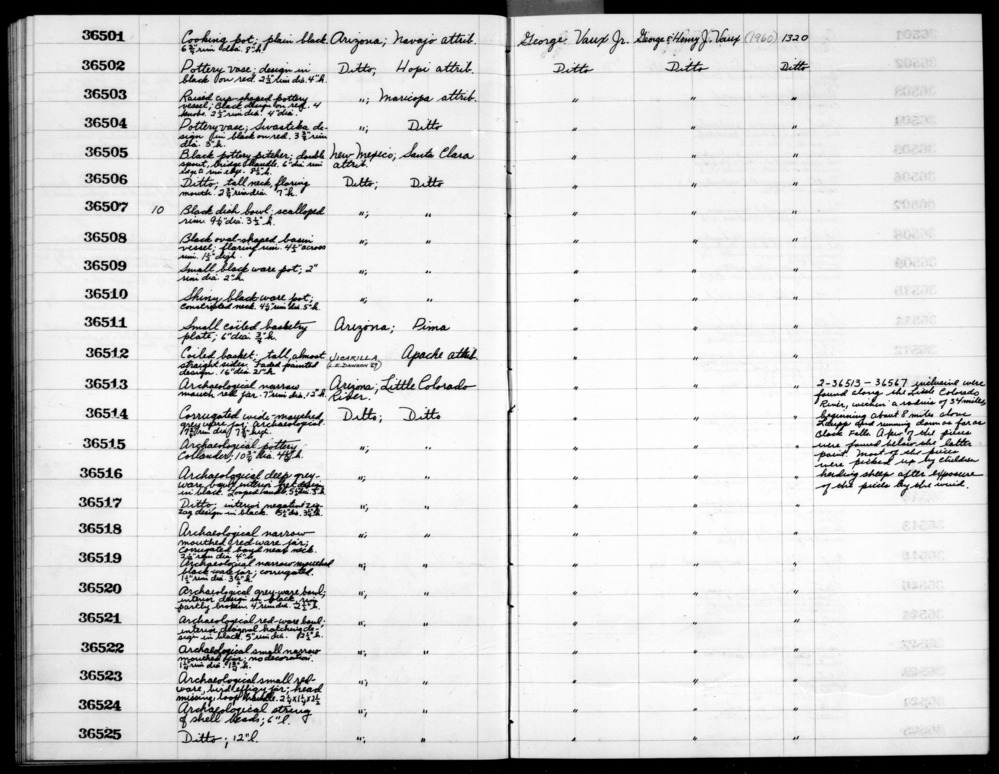 36501 Cooking pot; plain black. Arizona; Navajo attrib. George Vaux Jr. George & Henry J. Vaux (1960) 1320
6 3/4" rim dia. 8" h.
36502 Pottery vase; design in Ditto; Hopi attrib. Ditto Ditto Ditto
black on red. 2 1/2" rim dia. 4" h.
36503 Raised cup-shaped pottery "; Maricopa attrib. " " "
vessel; Black design on red. 4
knobs. 2 1/2" rim dia. 4" dia.
36504 Pottery vase; Swastika de- "; Ditto " " "
sign in black on red. 3 3/4" rim
dia. 5" h.
36505 Black pottery pitcher; double New Mexico; Santa Clara " " "
spout, bridge & handle. 6" dia rim attrib.
36506 Ditto; tall neck, flaring Ditto; Ditto " " "
mouth. 2 3/4" rim dia. 7" h.
36507 10 Black dish bowl; scalloped "; " " " "
rim. 9 1/2" dia. 3 1/2" h.
36508 Black oval-shaped basin "; " " " "
vessel; flaring rim. 4 1/2" across
rim. 1 1/2" high.
36509 Small black ware pot; 2" "; " " " "
rim dia. 2" h.
36510 Shiny black ware pot; "; " " " "
constricted neck. 4 1/2" rim dia. 5" h.
36511 Small coiled basketry Arizona; Pima " " "
plate; 6" dia. 3/4" h.
36512 Coiled basket; tall, almost JICARILLA Apache attrib. " " "
straight sides. Faded painted
design. 16" dia. 21" h.
36513 Archaeological narrow Arizona; Little Colorado " " "
mouth red jar. 7" rim dia. 12" h. River.
36514 Corrugated wide-mouthed Ditto; Ditto " " "
grey ware jar; Archaeological.
36515 Archaeological pottery "; " " " "
Collander; 10 3/4" dia. 4 1/2" h.
36516 Archaeological deep grey- "; " " " "
ware bowl; interior design
in black.
36517 Ditto; interior negative zig- "; " " " "
zag design in black.
36518 Archaeological narrow "; " " " "
mouthed red ware jar;
corrugated band near neck.
36519 Archaeological narrow mouthed "; " " " "
black ware jar; corrugated.
36520 Archaeological grey-ware bowl; "; " " " "
interior design in black, rim
partly broken. 4" rim dia. 2 1/2" h.
36521 Archaeological red-ware bowl; "; " " " "
interior diagonal hatching de-
sign in black. 5" rim dia. 2 1/2" h.
36522 Archaeological small narrow "; " " " "
mouthed jar; no decoration.
36523 Archaeological small red- "; " " " "
ware, bird effigy jar; head
missing, loop handle.
36524 Archaeological string "; " " " "
of shell beads; 6" l.
36525 Ditto; 12" l. "; " " " "
2-36513-36567 inclusive were
found along the Little Colorado
River, within a radius of 34 miles,
beginning about 8 miles above
Leupp and running down as far as
Black Falls. A few of the pieces
were found below the latter
point. Most of the pieces
were picked up by children
herding sheep after exposure
of the pieces by the wind.